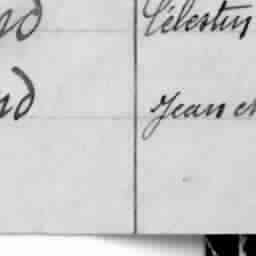 nd Célestin
nd Jean